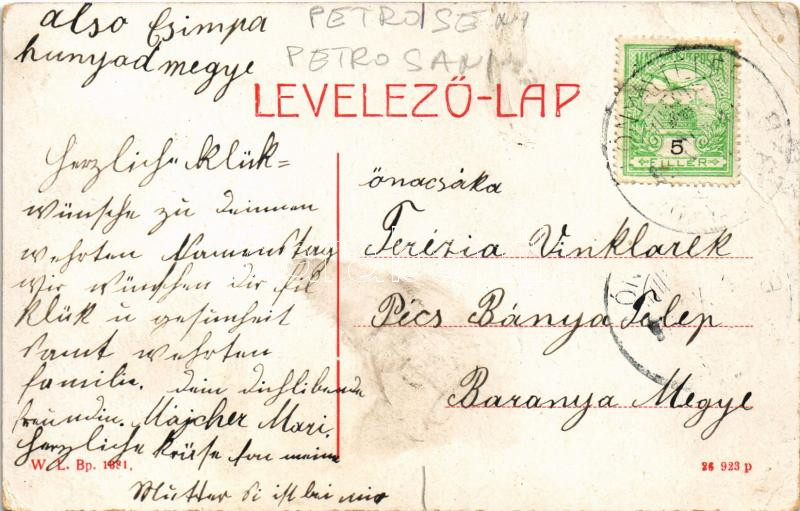 also Csimpa
hunyadmegye
PETROSENY
PETROSANI
LEVELEZŐ-LAP
5
FILLÉR
Herzliche Klück-
wünsche zu deinnen
wehrten Namenstag
wir wünschen dir fil
Klük u gesunheit
samt wehrten
familie. Dein dichlibende
freundin. Majcher Mari.
Herzliche Krüse fon meine
Mutter Si ist bei mir
önacsáka
Terézia Vinklarek
Pécs Bánya Telep
Baranya Megye
W. L. Bp. 1681.
26 923 p